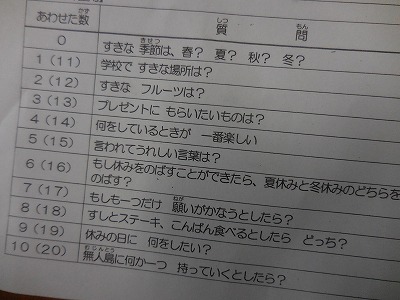 あわせた数 質問
0 すきな 季節は、春? 夏? 秋? 冬?
1(11) 学校で すきな場所は?
2(12) すきな フルーツは?
3(13) プレゼントに もらいたいものは?
4(14) 何をしているときが 一番楽しい
5(15) 言われてうれしい言葉は?
6(16) もし休みをのばすことができたら、夏休みと冬休みのどちらを
のばす?
7(17) もしも一つだけ 願いがかなうとしたら?
8(18) すしとステーキ、こんばん食べるとしたら どっち?
9(19) 休みの日に 何をしたい?
10(20) 無人島に何か一つ 持っていくとしたら?